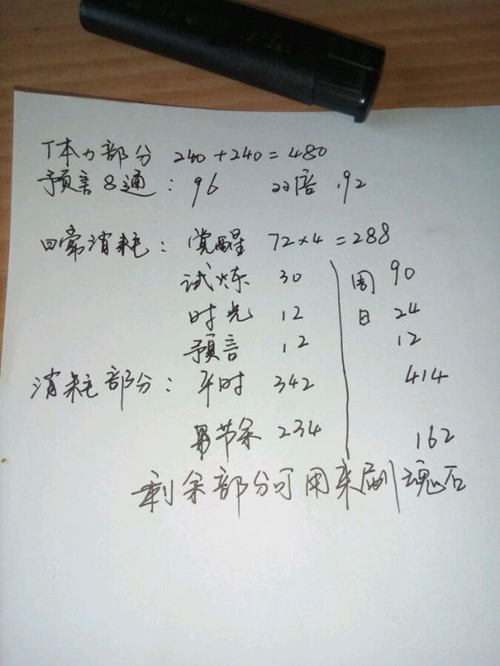 体力部分 240+240=480
预言8通: 96 双倍 192
日常消耗: 觉醒 72×4=288
试炼 30 周 90
时光 12 日 24
预言 12 12
消耗部分: 平时 342 414
另节余 234 162
剩余部分可用来刷魂石